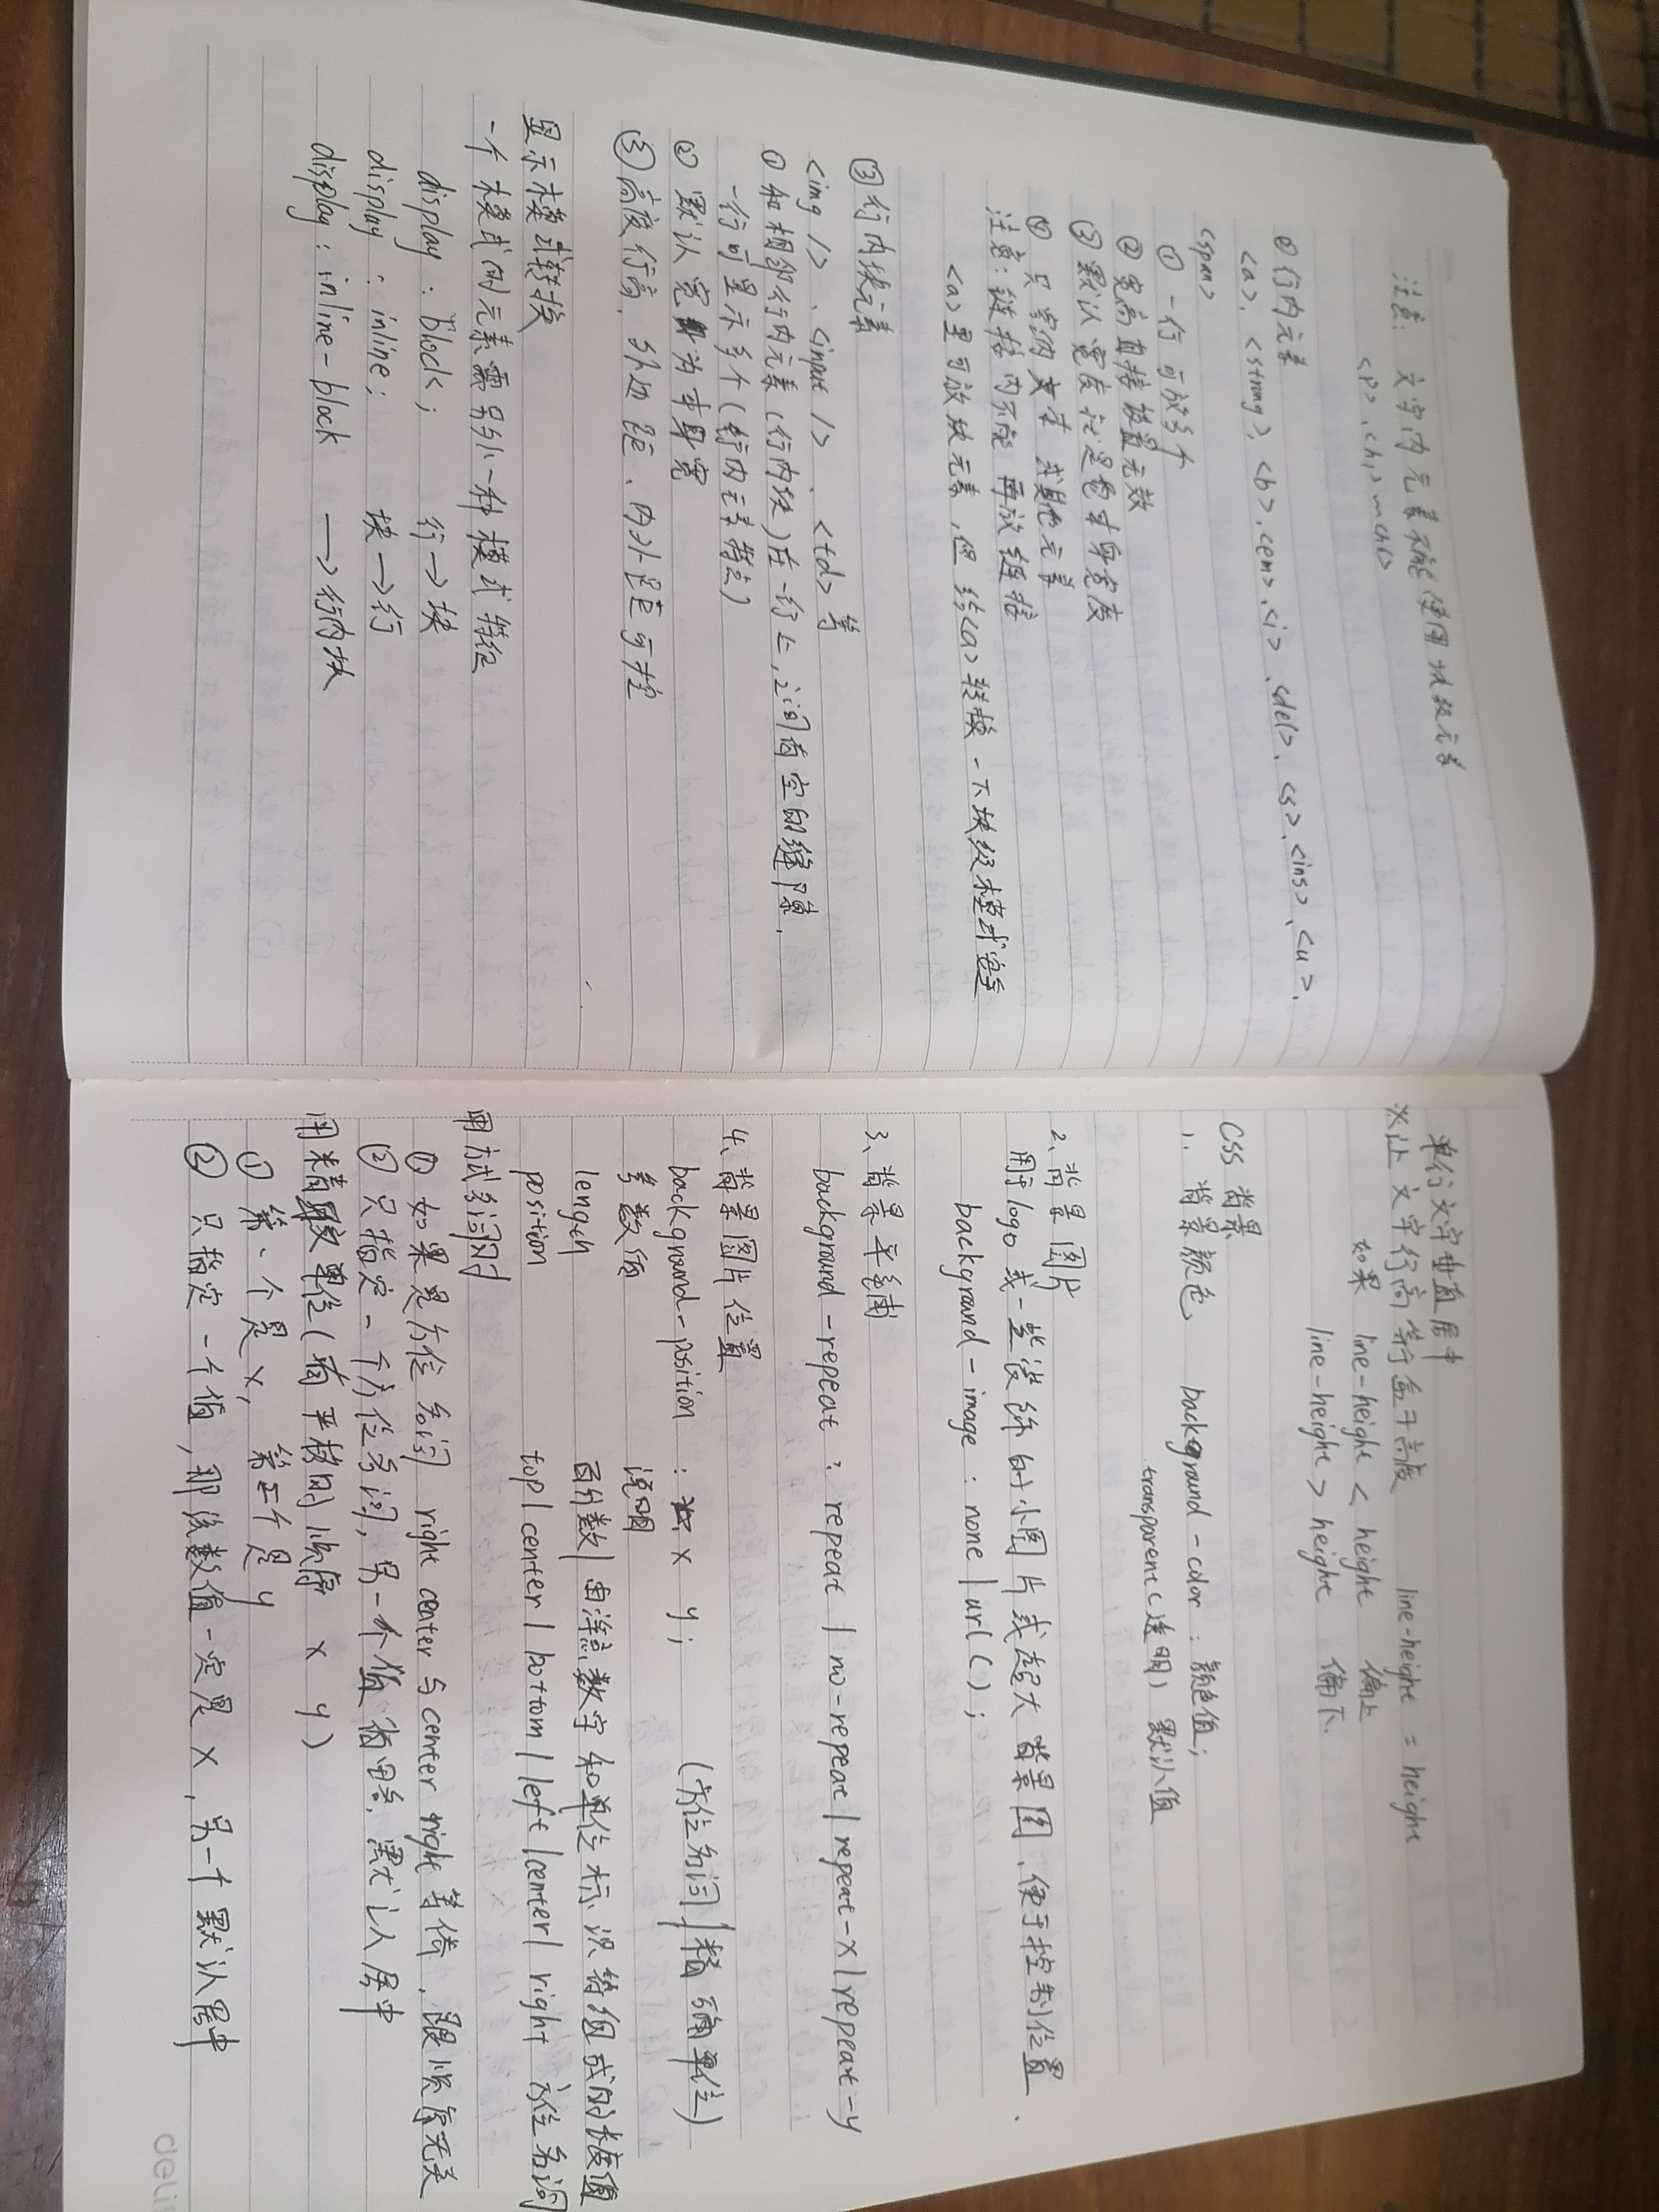 注意: 文字内元素不能使用块级元素
<p>、<h1>~<h6>
②行内元素
<a>、<strong>、<b>、<em>、<i>、<del>、<s>、<ins>、<u>、
<span>
① 一行可放多个
② 宽高直接设置无效
③ 默认宽度就是它本身宽度
④ 只容纳文本或其他元素
注意: 链接内不能再放链接
<a>里可放块元素,但给<a>转换一下块级模式安全
③行内块元素
<img />、<input />、<td>等
① 和相邻行内元素(行内块)在一行上,之间有空白缝隙.
一行可显示多个(行内元素特点)
② 默认宽为本身宽
③ 高度行高、外边距、内外距可控
显示模式转换
一个模式的元素需另外一种模式特征
display : block; 行→块
display : inline; 块→行
display : inline-block →行内块
单行文字垂直居中
※让文字行高等于高度 line-height = height
如果 line-height < height 偏上
line-height > height 偏下.
CSS 背景
1. 背景颜色 background-color : 颜色值;
transparent(透明) 默认值
2、背景图片
用于logo或一些装饰的小图片或超大背景图、便于控制位置.
background-image : none | url( );
3、背景平铺
background-repeat : repeat | no-repeat | repeat-x | repeat-y
4、背景图片位置
background-position : x y; (方位名词|精确单位)
参数值 说明
length 百分数|由浮点数字和单位标识符组成的长度值
position top | center | bottom | left | center | right 方位名词
用方式名词时
① 如果是方位名词 right center 与 center right 等价、跟顺序无关
② 只指定一个方位名词,另一个值省略,默认居中
用精确单位(有严格的顺序 x y)
① 第一个是 x, 第二个是 y
② 只指定一个值,那该数值一定是 x,另一个默认居中
deli